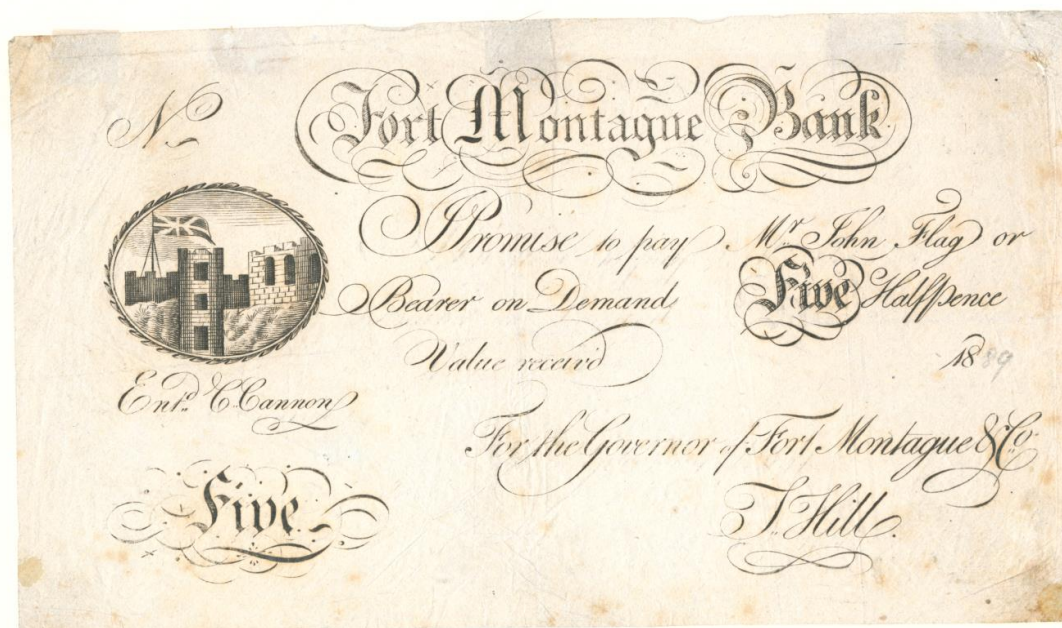 No
Fort Montague Bank
I Promise to pay Mr. John Flag or
Bearer on Demand Five Halfpence
Value receivd
1889
Entd. C. Cannon
For the Governor of Fort Montague & Co.
Five
T. Hill.